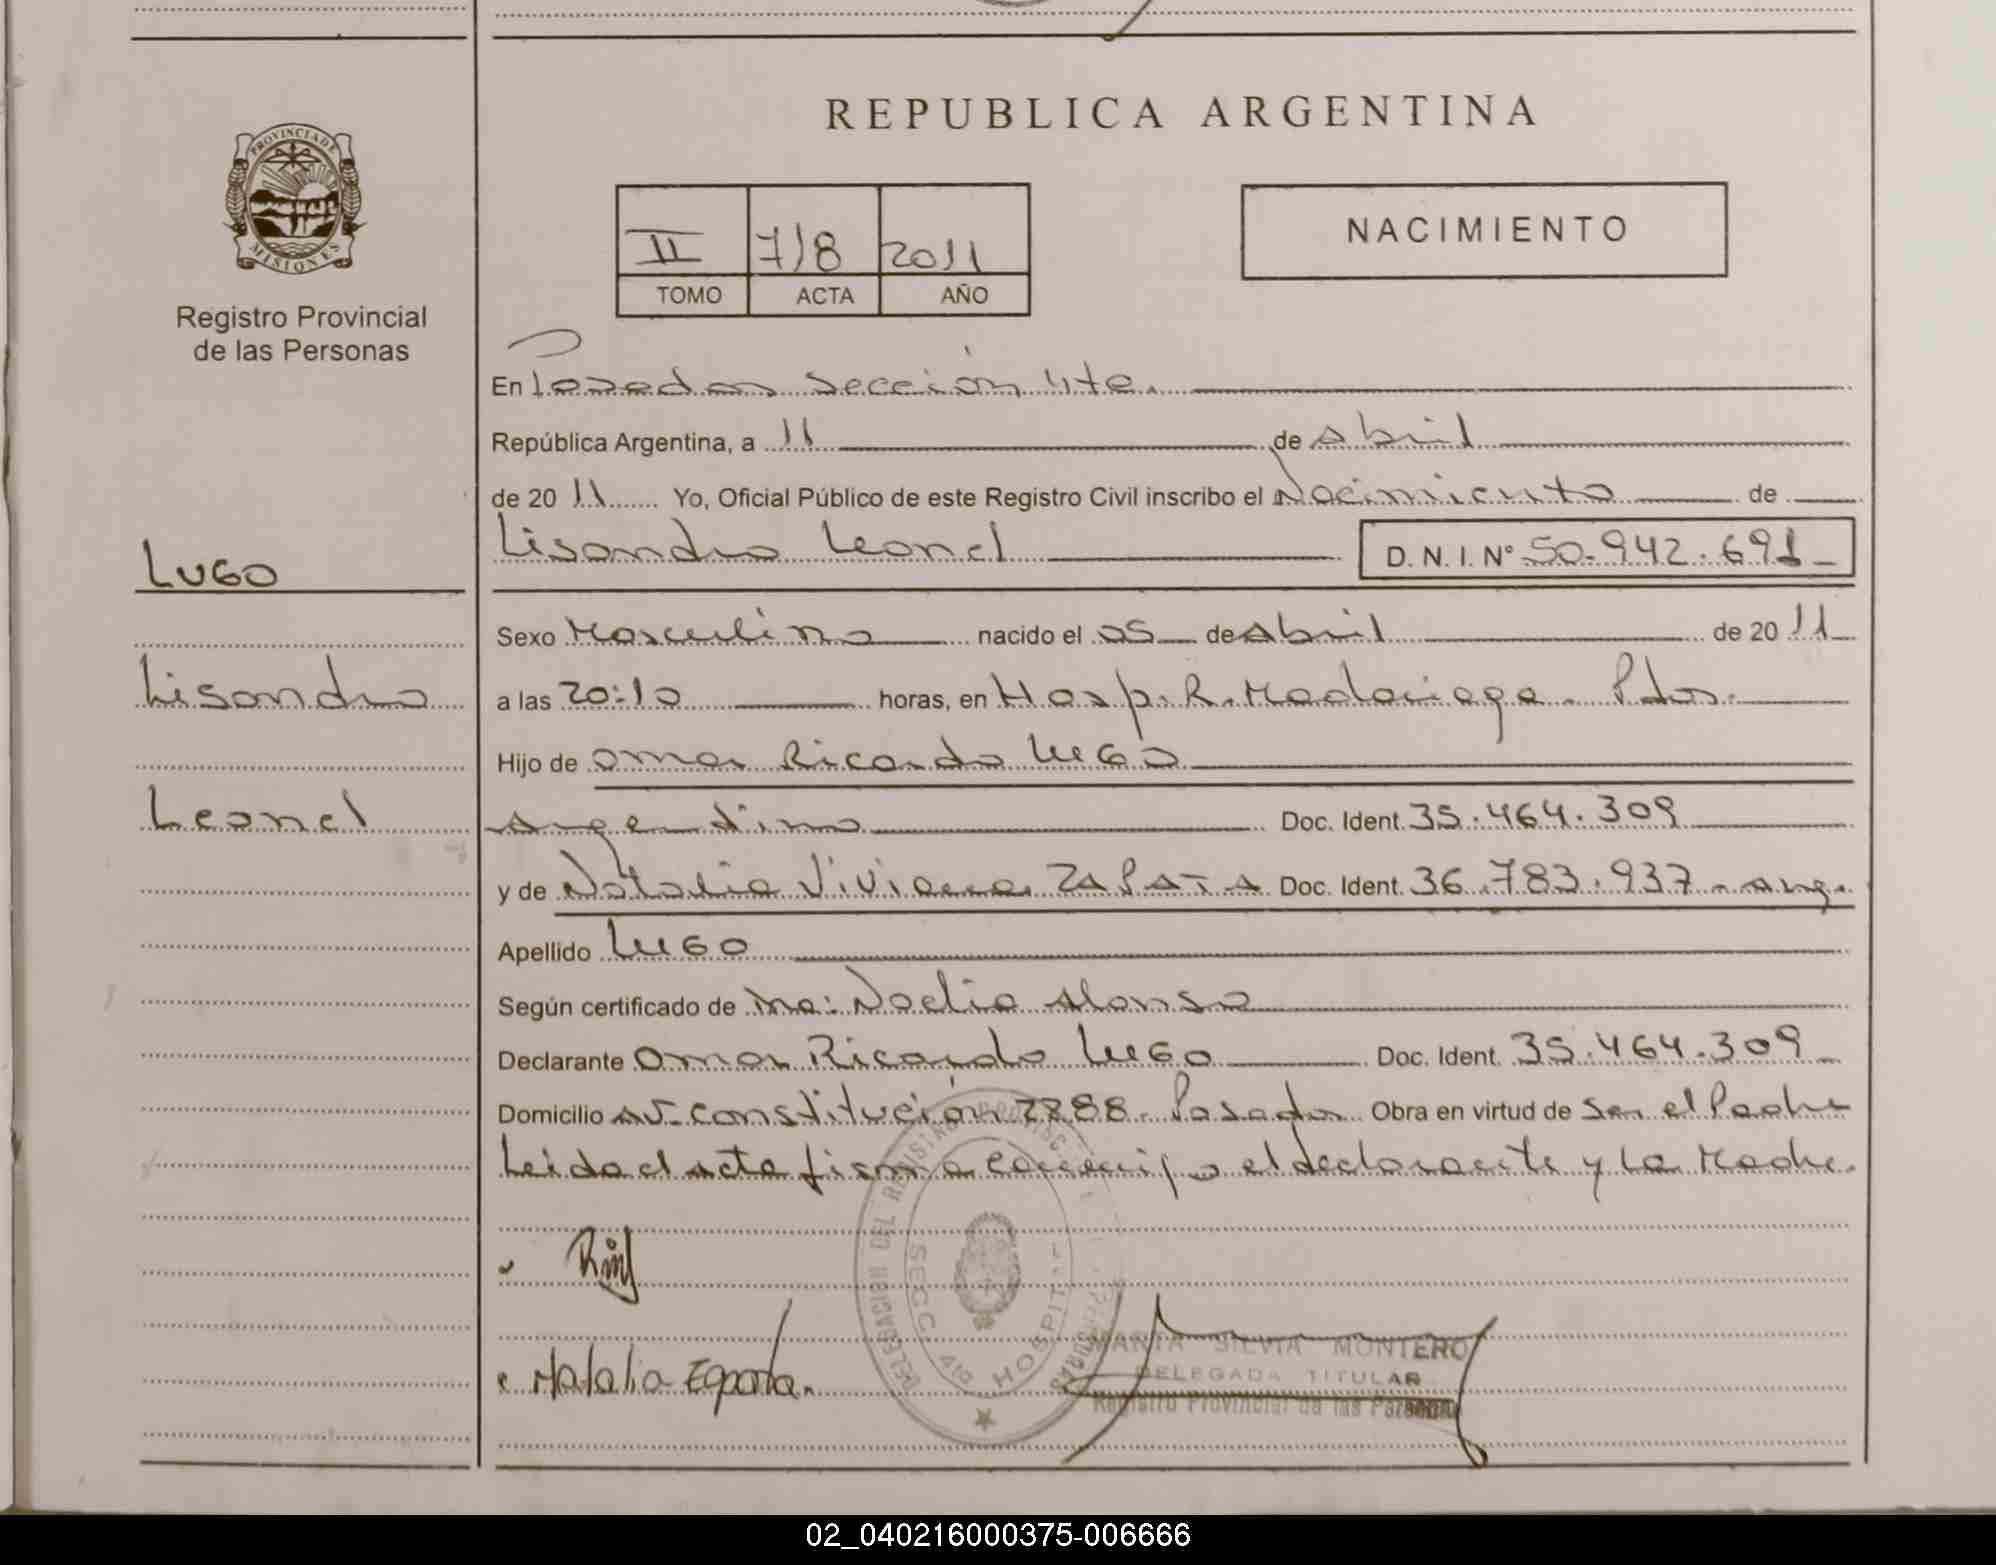 REPUBLICA ARGENTINA
PROVINCIA DE MISIONES
Registro Provincial
de las Personas
II 718 2011
TOMO ACTA AÑO
NACIMIENTO
En Posadas sección 4ta.
República Argentina, a 11 de Abril
de 20 11 Yo, Oficial Público de este Registro Civil inscribo el Nacimiento de
Lisandro Leonel D. N. I. N° 50.942.691
LUGO
Lisandro
Leonel
Sexo Masculino nacido el 05 de Abril de 20 11
a las 20:10 horas, en Hosp. R. Madariaga. Pdas.
Hijo de Omar Ricardo LUGO
Argentino Doc. Ident. 35.464.309
y de Natalia Viviana ZAPATA Doc. Ident. 36.783.937. arg.
Apellido LUGO
Según certificado de Noelia Alonso
Declarante Omar Ricardo LUGO Doc. Ident. 35.464.309
Domicilio Av. Constitución 2288. Posadas Obra en virtud de Ser el Padre
Leida el acta firma conmigo el declarante y La Madre.
DELEGACION DEL REGISTRO
SECC. 4ta HOSPITAL
Natalia Zapata.
MARTA SILVIA MONTERO
DELEGADA TITULAR
Registro Provincial de las Personas
02_040216000375-006666